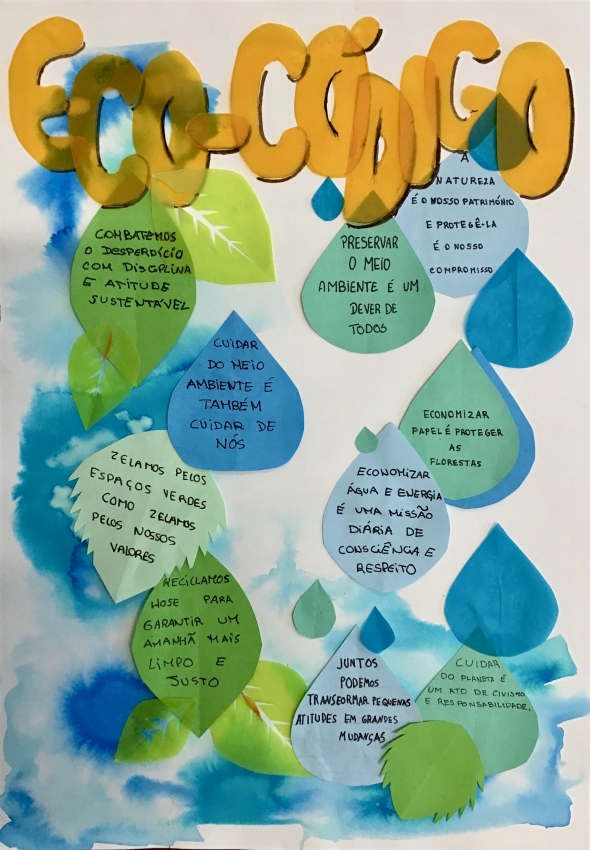 ECO-CÓDIGO
A
NATUREZA
É O NOSSO PATRIMÓNIO
E PROTEGÊ-LA
É O NOSSO
COMPROMISSO
COMBATEMOS
O DESPERDÍCIO
COM DISCIPLINA
E ATITUDE
SUSTENTÁVEL
PRESERVAR
O MEIO
AMBIENTE É UM
DEVER DE
TODOS
CUIDAR
DO MEIO
AMBIENTE É
TAMBÉM
CUIDAR DE
NÓS
ECONOMIZAR
PAPEL É PROTEGER
AS
FLORESTAS
ZELAMOS PELOS
ESPAÇOS VERDES
COMO ZELAMOS
PELOS NOSSOS
VALORES
ECONOMIZAR
ÁGUA E ENERGIA
É UMA MISSÃO
DIÁRIA DE
CONSCIÊNCIA E
RESPEITO
RECICLAMOS
HOJE PARA
GARANTIR UM
AMANHÃ MAIS
LIMPO E
JUSTO
JUNTOS
PODEMOS
TRANSFORMAR PEQUENAS
ATITUDES EM GRANDES
MUDANÇAS
CUIDAR
DO PLANETA É
UM ATO DE CIVISMO
E RESPONSABILIDADE.